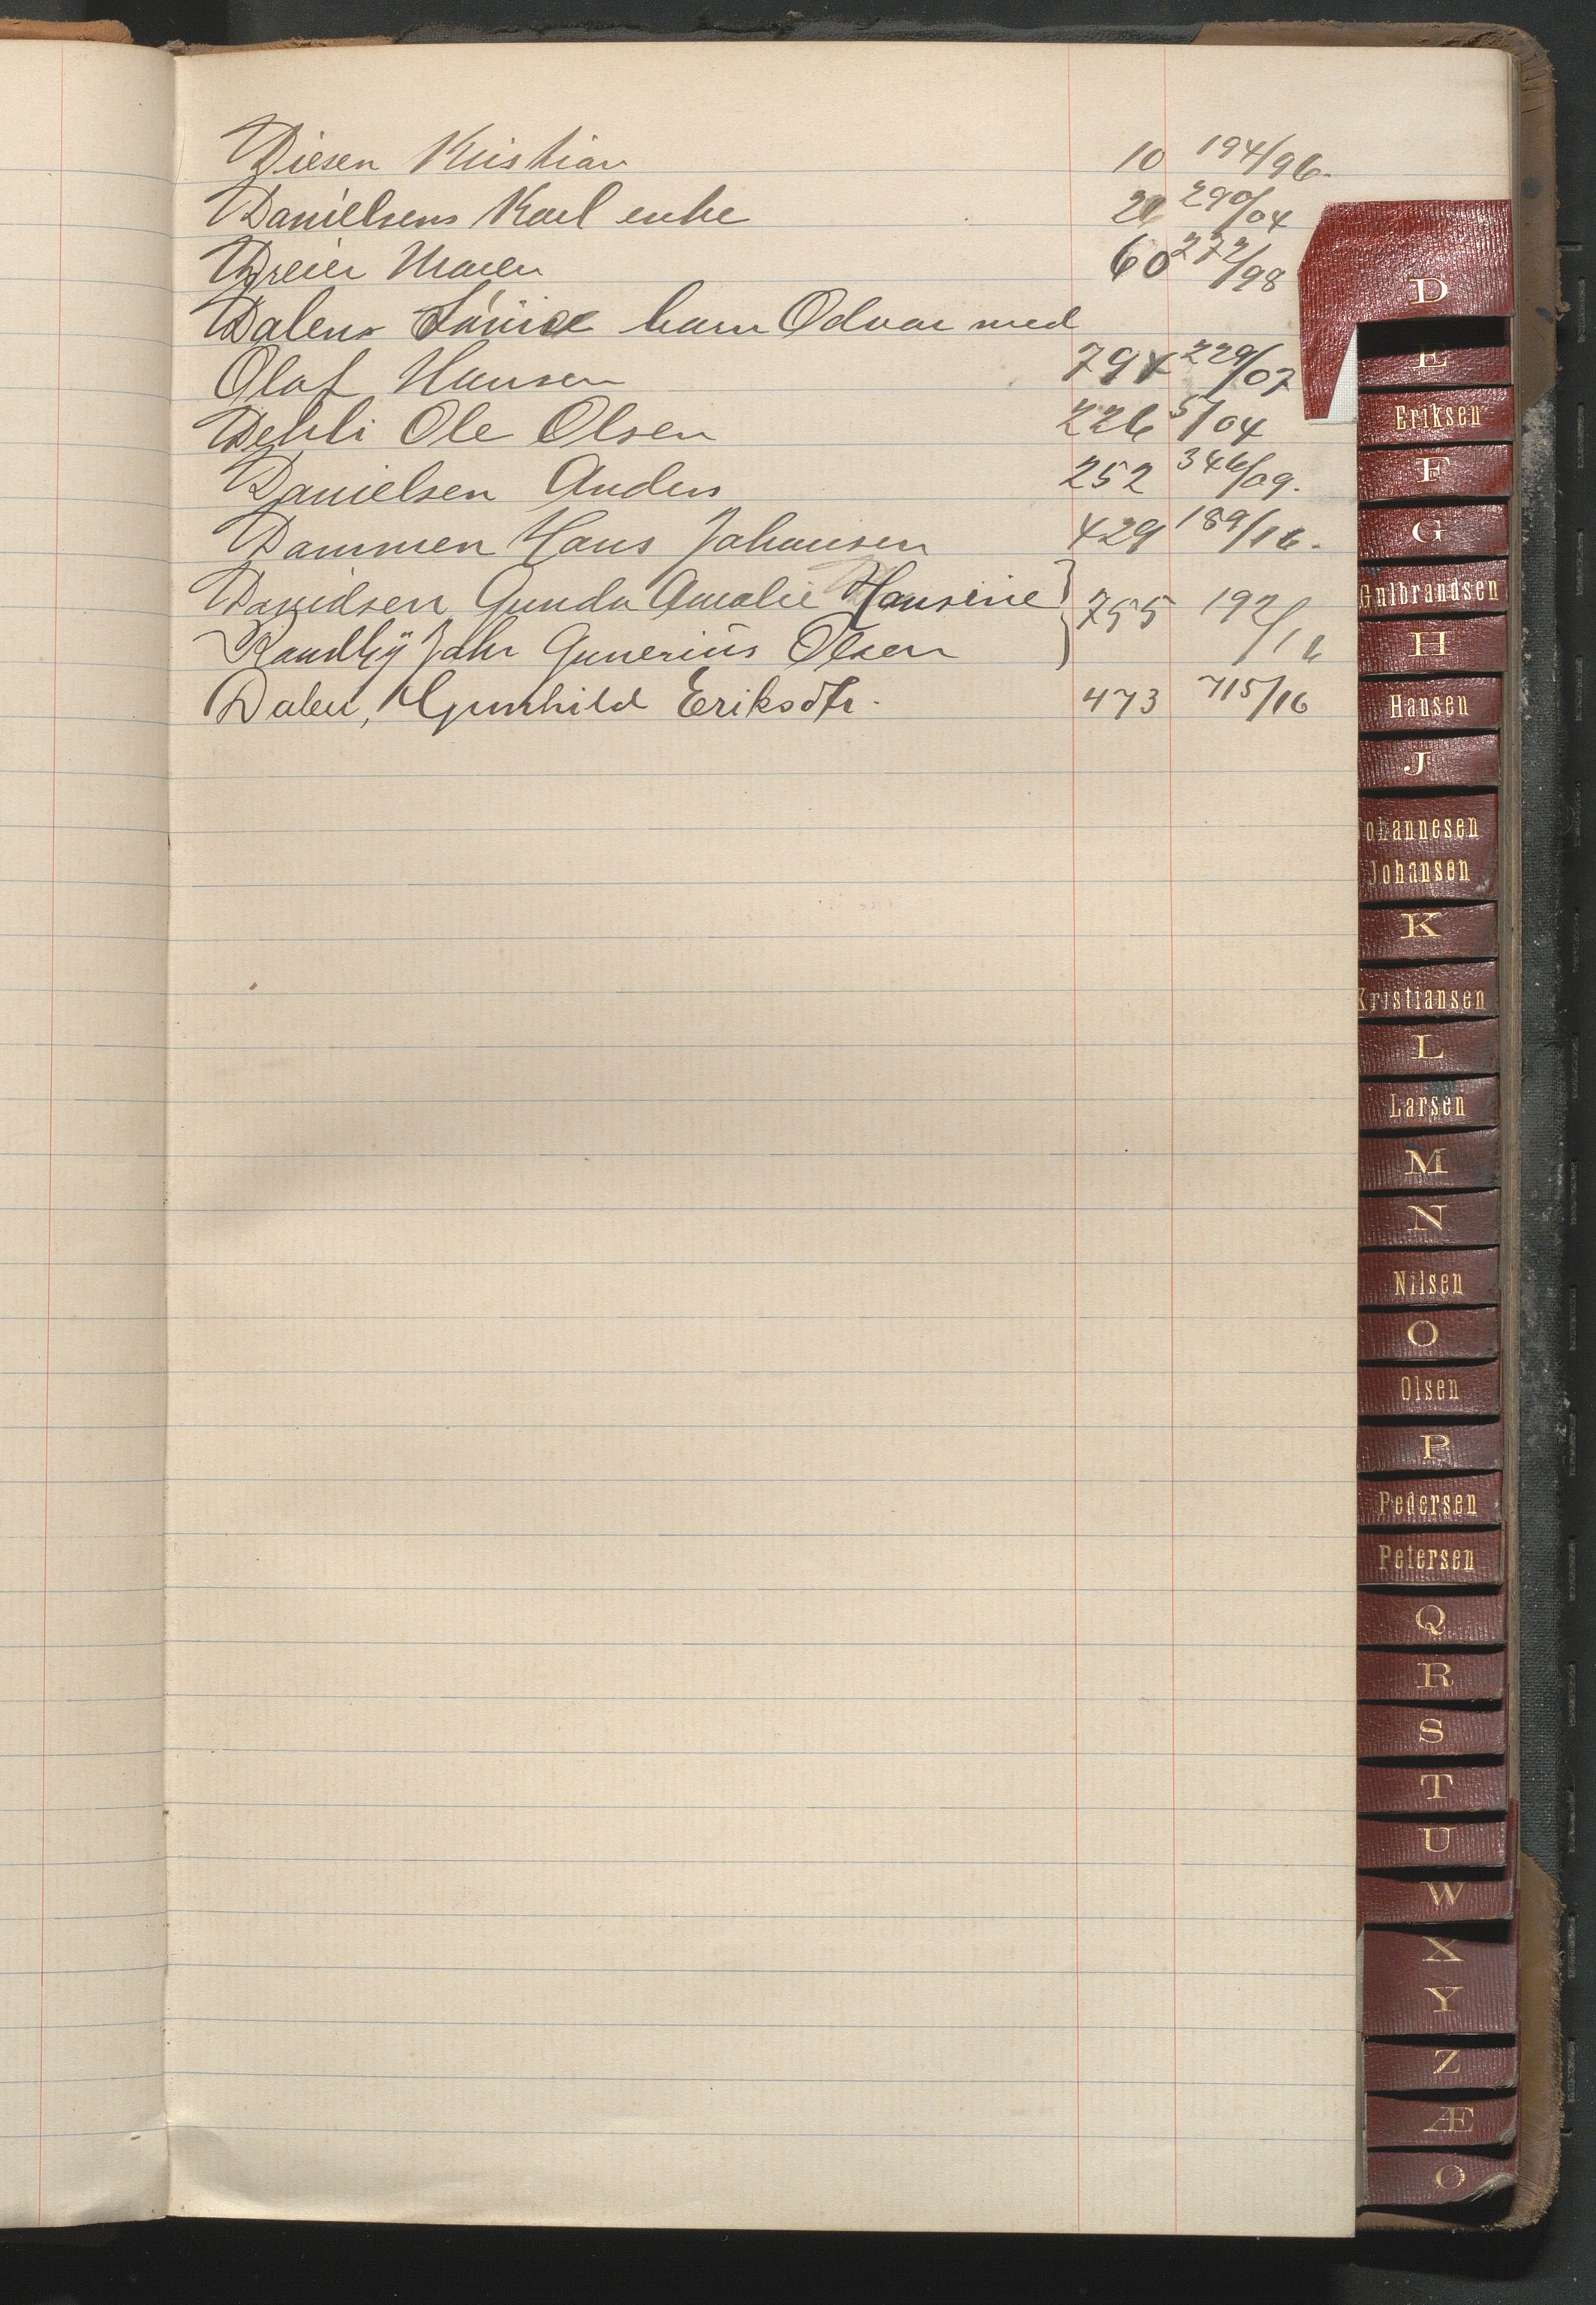 Diesen Kristian 10 194/96.
Danielsens Karl enke 20 290/04
Dreier Maren 60 272/98
Dalens Lovise barn Odvar med
Olaf Hansen 794 229/07
Dehli Ole Olsen 226 5/04
Danielsen Anders 252 346/09.
Dammen Hans Johansen 429 189/16.
Davidsen Gunda Amalie Hansine } 755 192/16
Gunerius Olsen
Dalen, Gunhild Eriksdtr. 473 715/16
D
E
Eriksen
F
G
Gulbrandsen
H
Hansen
J
Johannesen
Johansen
K
Kristiansen
L
Larsen
M
N
Nilsen
O
Olsen
P
Pedersen
Petersen
Q
R
S
T
U
W
X
Y
Z
Æ
Ø